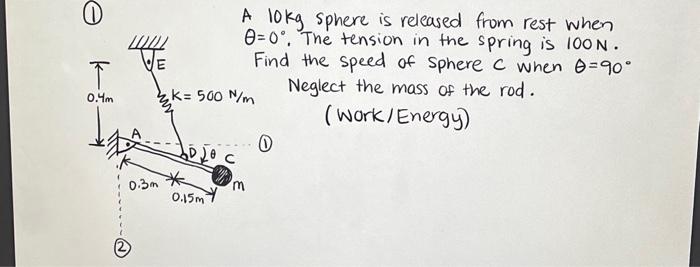 ①
A 10kg sphere is released from rest when
θ=0°. The tension in the spring is 100N.
Find the speed of sphere C when θ=90°
Neglect the mass of the rod.
(Work/Energy)
E
0.4m
K= 500 N/m
A
D
θ
C
①
m
0.3m
0.15m
②